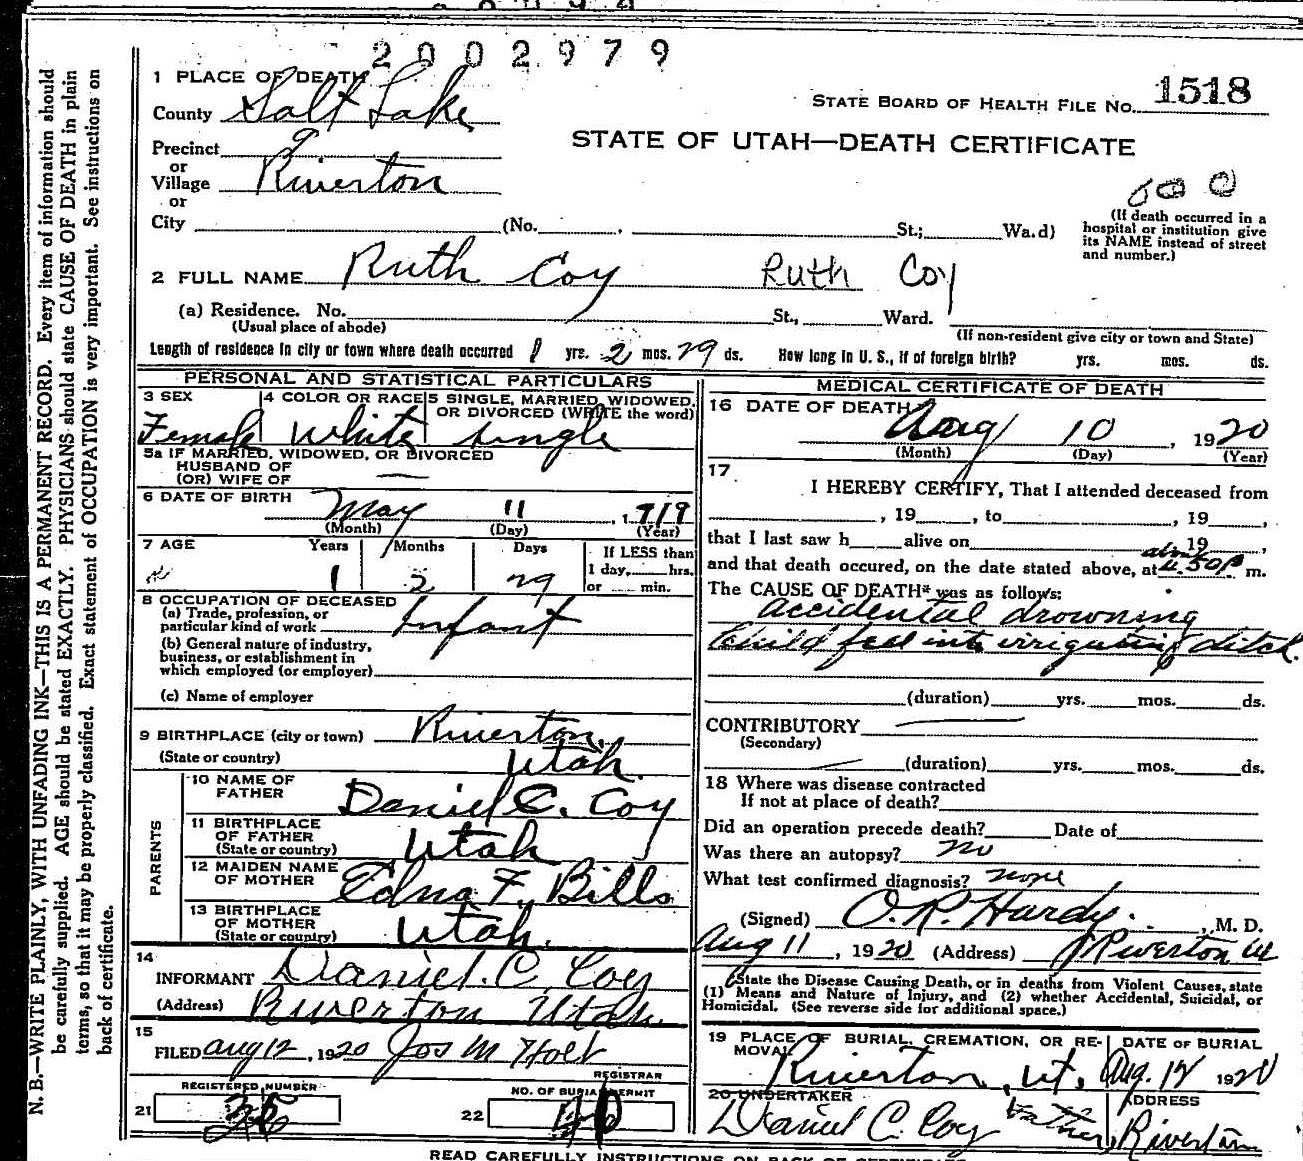 2002979
1 PLACE OF DEATH
County Salt Lake
STATE BOARD OF HEALTH FILE NO. 1518
STATE OF UTAH—DEATH CERTIFICATE
Precinct
or
Village Riverton
or
City (No. , St.; Wa.d)
(If death occurred in a
hospital or institution give
its NAME instead of street
and number.)
2 FULL NAME Ruth Coy Ruth Coy
(a) Residence. No. St., Ward.
(Usual place of abode)
(If non-resident give city or town and State)
Length of residence in city or town where death occurred 1 yrs. 2 mos. 29 ds. How long in U. S., if of foreign birth? yrs. mos. ds.
PERSONAL AND STATISTICAL PARTICULARS
3 SEX 4 COLOR OR RACE 5 SINGLE, MARRIED, WIDOWED,
OR DIVORCED (WRITE the word)
Female White single
5a IF MARRIED, WIDOWED, OR DIVORCED
HUSBAND OF
(OR) WIFE OF
6 DATE OF BIRTH
May 11, 1919
(Month) (Day) (Year)
7 AGE Years Months Days If LESS than
1 day, hrs.
or min.
1 2 29
8 OCCUPATION OF DECEASED
(a) Trade, profession, or
particular kind of work Infant
(b) General nature of industry,
business, or establishment in
which employed (or employer)
(c) Name of employer
9 BIRTHPLACE (city or town) Riverton,
(State or country) Utah.
PARENTS
10 NAME OF
FATHER Daniel C. Coy
11 BIRTHPLACE
OF FATHER
(State or country) Utah
12 MAIDEN NAME
OF MOTHER Edna F. Bills
13 BIRTHPLACE
OF MOTHER
(State or country) Utah.
14
INFORMANT Daniel. C. Coy
(Address) Riverton Utah.
15
FILED Aug 12, 1920 Jos M Holt
REGISTRAR
REGISTERED NUMBER NO. OF BURIAL PERMIT
21 22
MEDICAL CERTIFICATE OF DEATH
16 DATE OF DEATH
Aug 10, 1920
(Month) (Day) (Year)
17
I HEREBY CERTIFY, That I attended deceased from
, 19 , to , 19 ,
that I last saw h alive on 19 ,
and that death occured, on the date stated above, at about 4.50 p m.
The CAUSE OF DEATH* was as follows:
accidental drowning
Child fell into irrigating ditch.
(duration) yrs. mos. ds.
CONTRIBUTORY
(Secondary)
(duration) yrs. mos. ds.
18 Where was disease contracted
If not at place of death?
Did an operation precede death? Date of
Was there an autopsy? no
What test confirmed diagnosis? none
(Signed) O. R. Hardy., M. D.
Aug 11, 1920 (Address) Riverton Ut
State the Disease Causing Death, or in deaths from Violent Causes, state
(1) Means and Nature of Injury, and (2) whether Accidental, Suicidal, or
Homicidal. (See reverse side for additional space.)
19 PLACE OF BURIAL, CREMATION, OR RE-
MOVAL DATE OF BURIAL
Riverton, Ut. Aug. 12 1920
20 UNDERTAKER ADDRESS
Daniel C. Coy father, Riverton
N. B.—WRITE PLAINLY, WITH UNFADING INK—THIS IS A PERMANENT RECORD. Every item of information should
be carefully supplied. AGE should be stated EXACTLY. PHYSICIANS should state CAUSE OF DEATH in plain
terms, so that it may be properly classified. Exact statement of OCCUPATION is very important. See instructions on
back of certificate.
READ CAREFULLY INSTRUCTIONS ON BACK OF CERTIFICATE